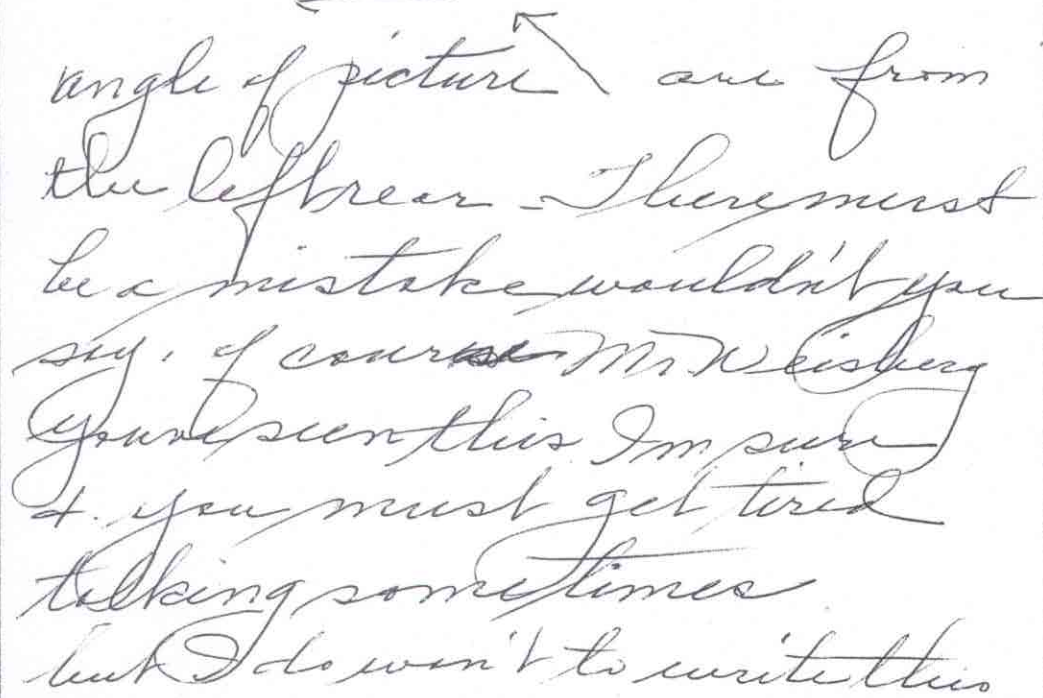 angle of picture are from
the left rear - There must
be a mistake wouldn't you
say. of course Mr Weisberg
you've seen this Im sure
+. you must get tired
talking sometimes
but I do wan't to write this